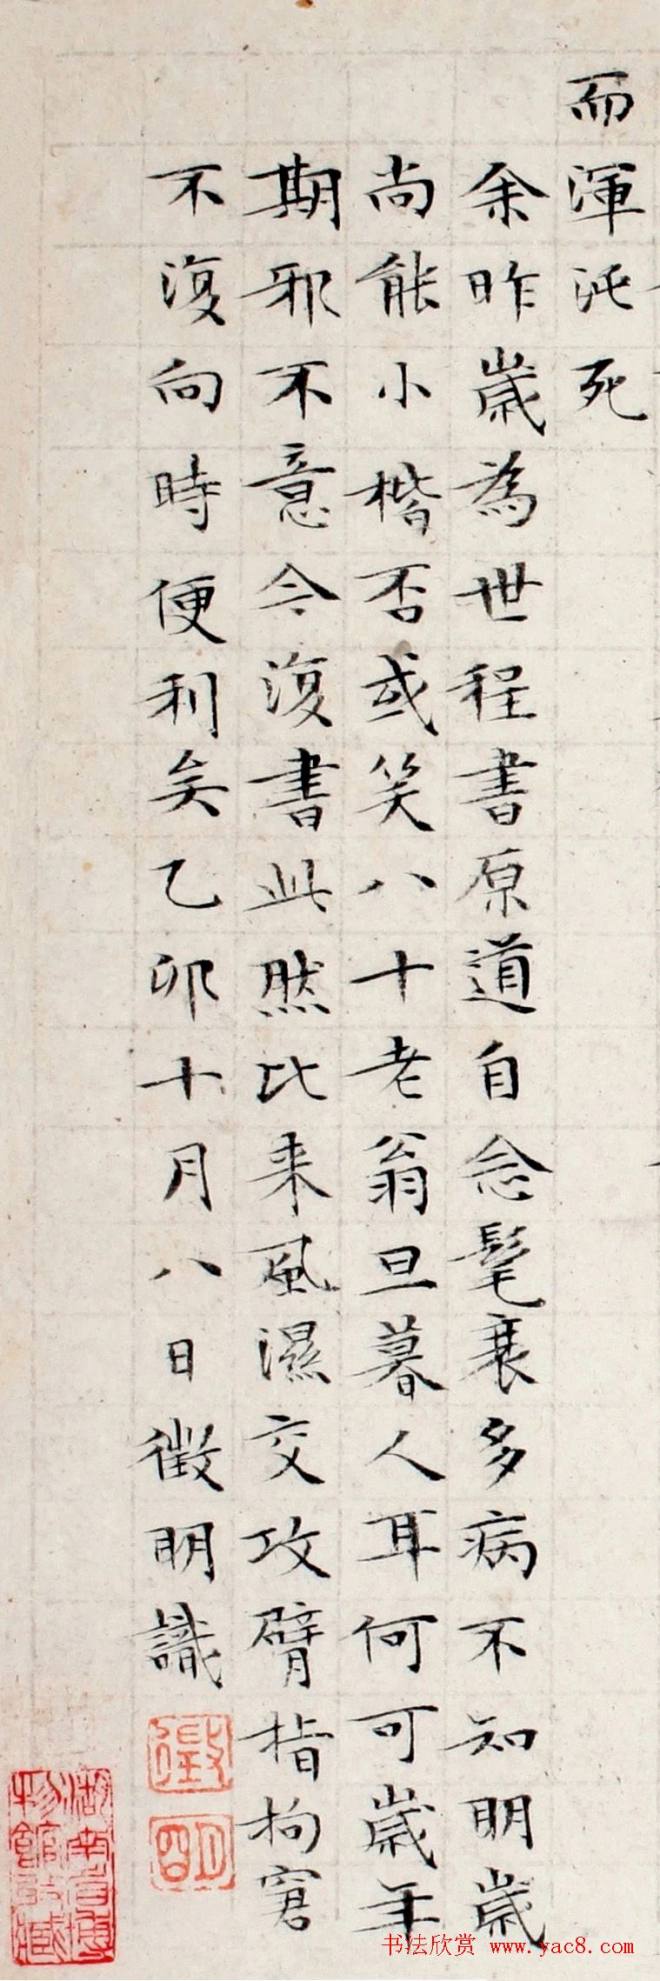 而渾沌死
余昨歲為世程書原道自念髦衰多病不知明歲
尚能小楷否或笑八十老翁旦暮人耳何可歲年
期邪不意今復書此然比来風濕交攻臂指拘窘
不復向時便利矣乙卯十月八日徵明識
徵
明
湖南省博
物館所藏
书法欣赏 www.yac8.com